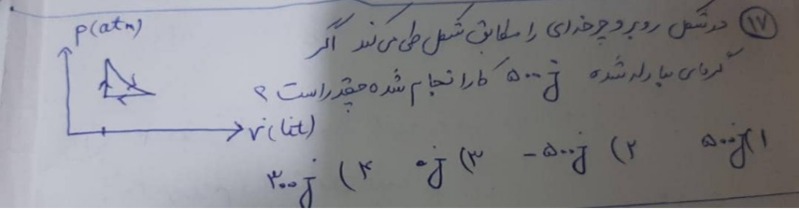 ۱۷) در شکل روبرو چرخه‌ای را مطابق شکل طی می‌کند اگر
گرمای مبادله شده ۵۰۰j کار انجام شده چقدر است ؟
P(atm)
V(lit)
۱) ۵۰۰j ۲) -۵۰۰j ۳) ۰j ۴) ۳۰۰j